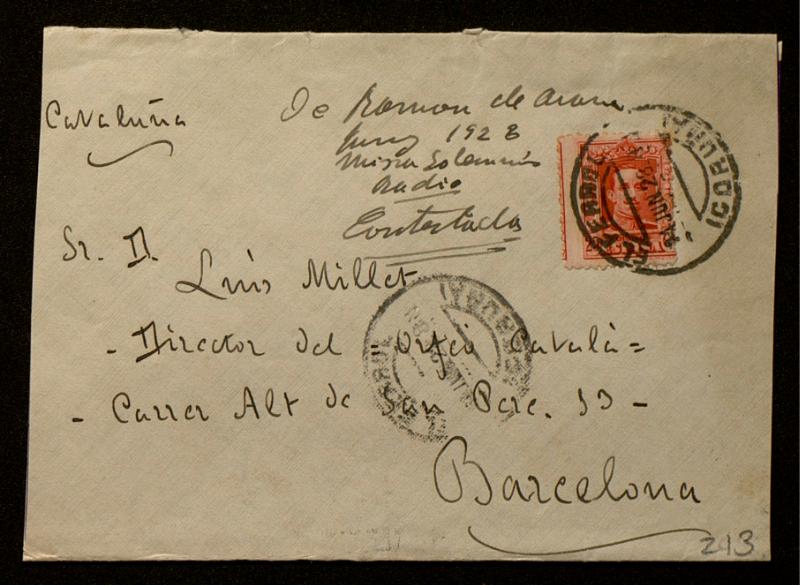 Cataluña
De Ramon de Arana
Juny 1928
Missa Solemnis
Radio
Contestada
EL FERROL (CORUÑA)
JUN 28
Sr. D.
Luis Millet
- Director del Orfeó Català =
- Carrer Alt de San Pere. 13 -
Barcelona
EL FERROL (CORUÑA)
213